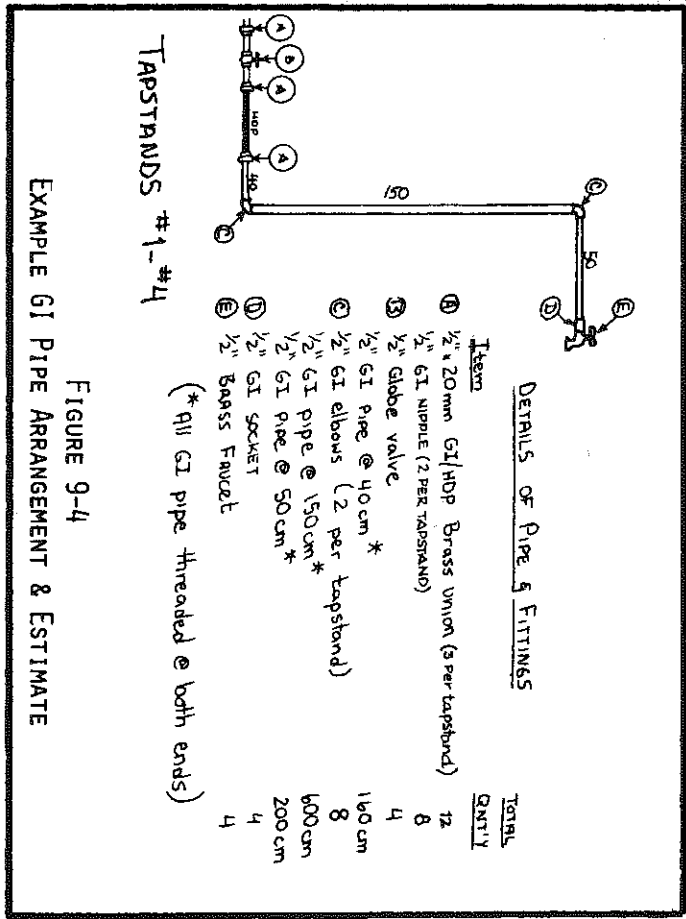 A
B
A
HDP
A
40
C
150
C
50
D
E
TAPSTANDS #1-#4
DETAILS OF PIPE & FITTINGS
Item TOTAL QNT'Y
A 1/2" x 20mm GI/HDP Brass Union (3 per tapstand) 12
1/2" GI NIPPLE (2 PER TAPSTAND) 8
B 1/2" Globe valve 4
1/2" GI Pipe @ 40cm * 160cm
C 1/2" GI elbows (2 per tapstand) 8
1/2" GI pipe @ 150cm * 600cm
1/2" GI pipe @ 50cm * 200cm
D 1/2" GI SOCKET 4
E 1/2" BRASS FAUCET 4
(* All GI pipe threaded @ both ends)
FIGURE 9-4
EXAMPLE GI PIPE ARRANGEMENT & ESTIMATE